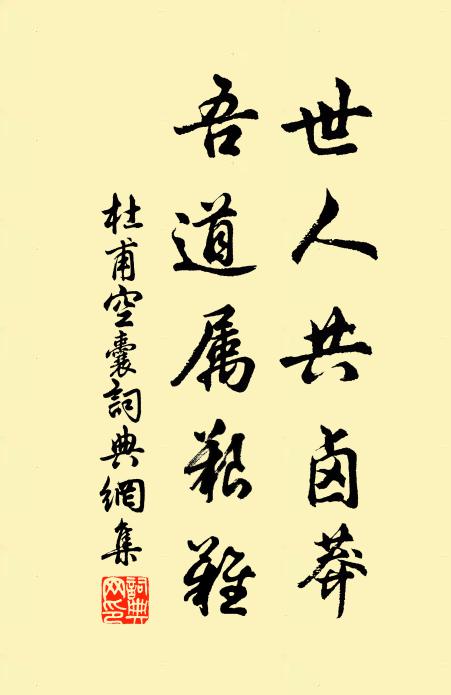 世人共卤莽
吾道属艱難
杜甫空囊詞典網集
詞典网印